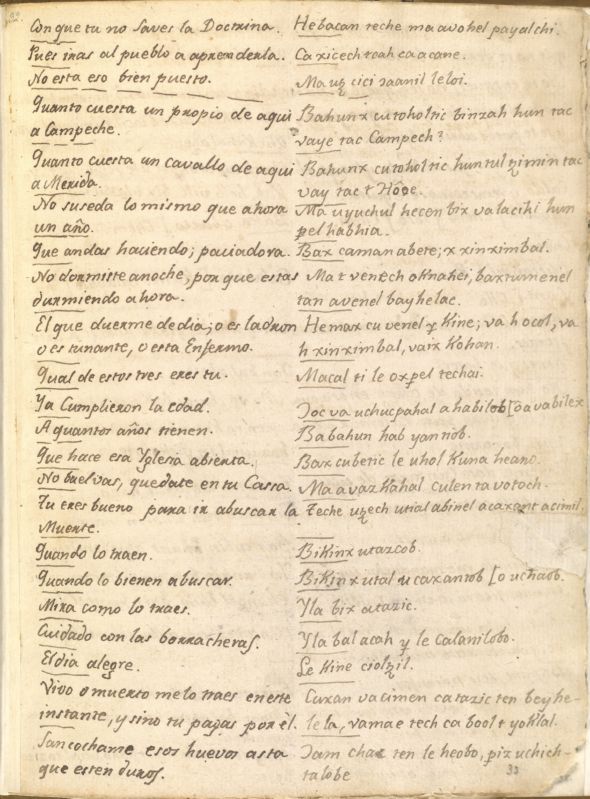 Con que tu no saves la Doctrina. Hebacan teche ma a vohel payalchi.
Pues iras al pueblo a aprenderla. Ca xicech tcah ca a cane.
No esta eso bien puesto. Ma uɔ cici ɔaanil leloi.
Quanto cuesta un propio de aqui Bahunx cu toholtic binzah hun tac
a Campeche. vaye tac Campech?
Quanto cuesta un cavallo de aqui Bahunx cu toholtic huntul tzimin tac
a Merida. vay tac t Hóoe.
No suseda lo mismo que ahora Ma uyuchul hecen bix va lacihi hun
un año. pel habhia.
Que andas haciendo; paciadora. Bax caman abete; x xinximbal.
No dormiste anoche, por que estas Ma t venech oknahei, baxtumenel
durmiendo ahora. tan avenel bayhelac.
El que duerme de dia; o es ladron Hemax cu venel y Kine; va h ocol, va
o es tunante, o esta Enfermo. h xinximbal, vaix Kohan.
Qual de estos tres eres tu. Macal ti le oxpel techai.
Ya Cumplieron la edad. Ɔoc va uchucpahal a habilob [o a vabilex
A quantos años tienen. Babahun hab yantiob.
Que hace esa Yglesia abierta. Bax cubetic le uhol Kuna heano.
No buelvas, quedate en tu Cassa. Ma a vaz Kahal culen ta votoch.
Tu eres bueno para ir abuscar la Teche uɔech utial abinel acaxant acimil.
Muerte.
Quando lo traen. Bikinx utazcob.
Quando lo bienen abuscar. Bikinx utal u caxantob [o uchaob.
Mira como lo traes. Yla bix atazic.
Cuidado con las borracheras. Yla bal acah y le calanilobo.
El dia alegre. Le Kine ciolɔil.
Vivo o muerto melo traes en este Cuxan va cimen ca tazic ten beyhe-
instante, y sino tu pagas por él. le la, vamae tech ca bool t yoklal.
Sancochame esos huevos asta Ɔam chac ten le heobo, piz uchich-
que esten duros. talobe
33